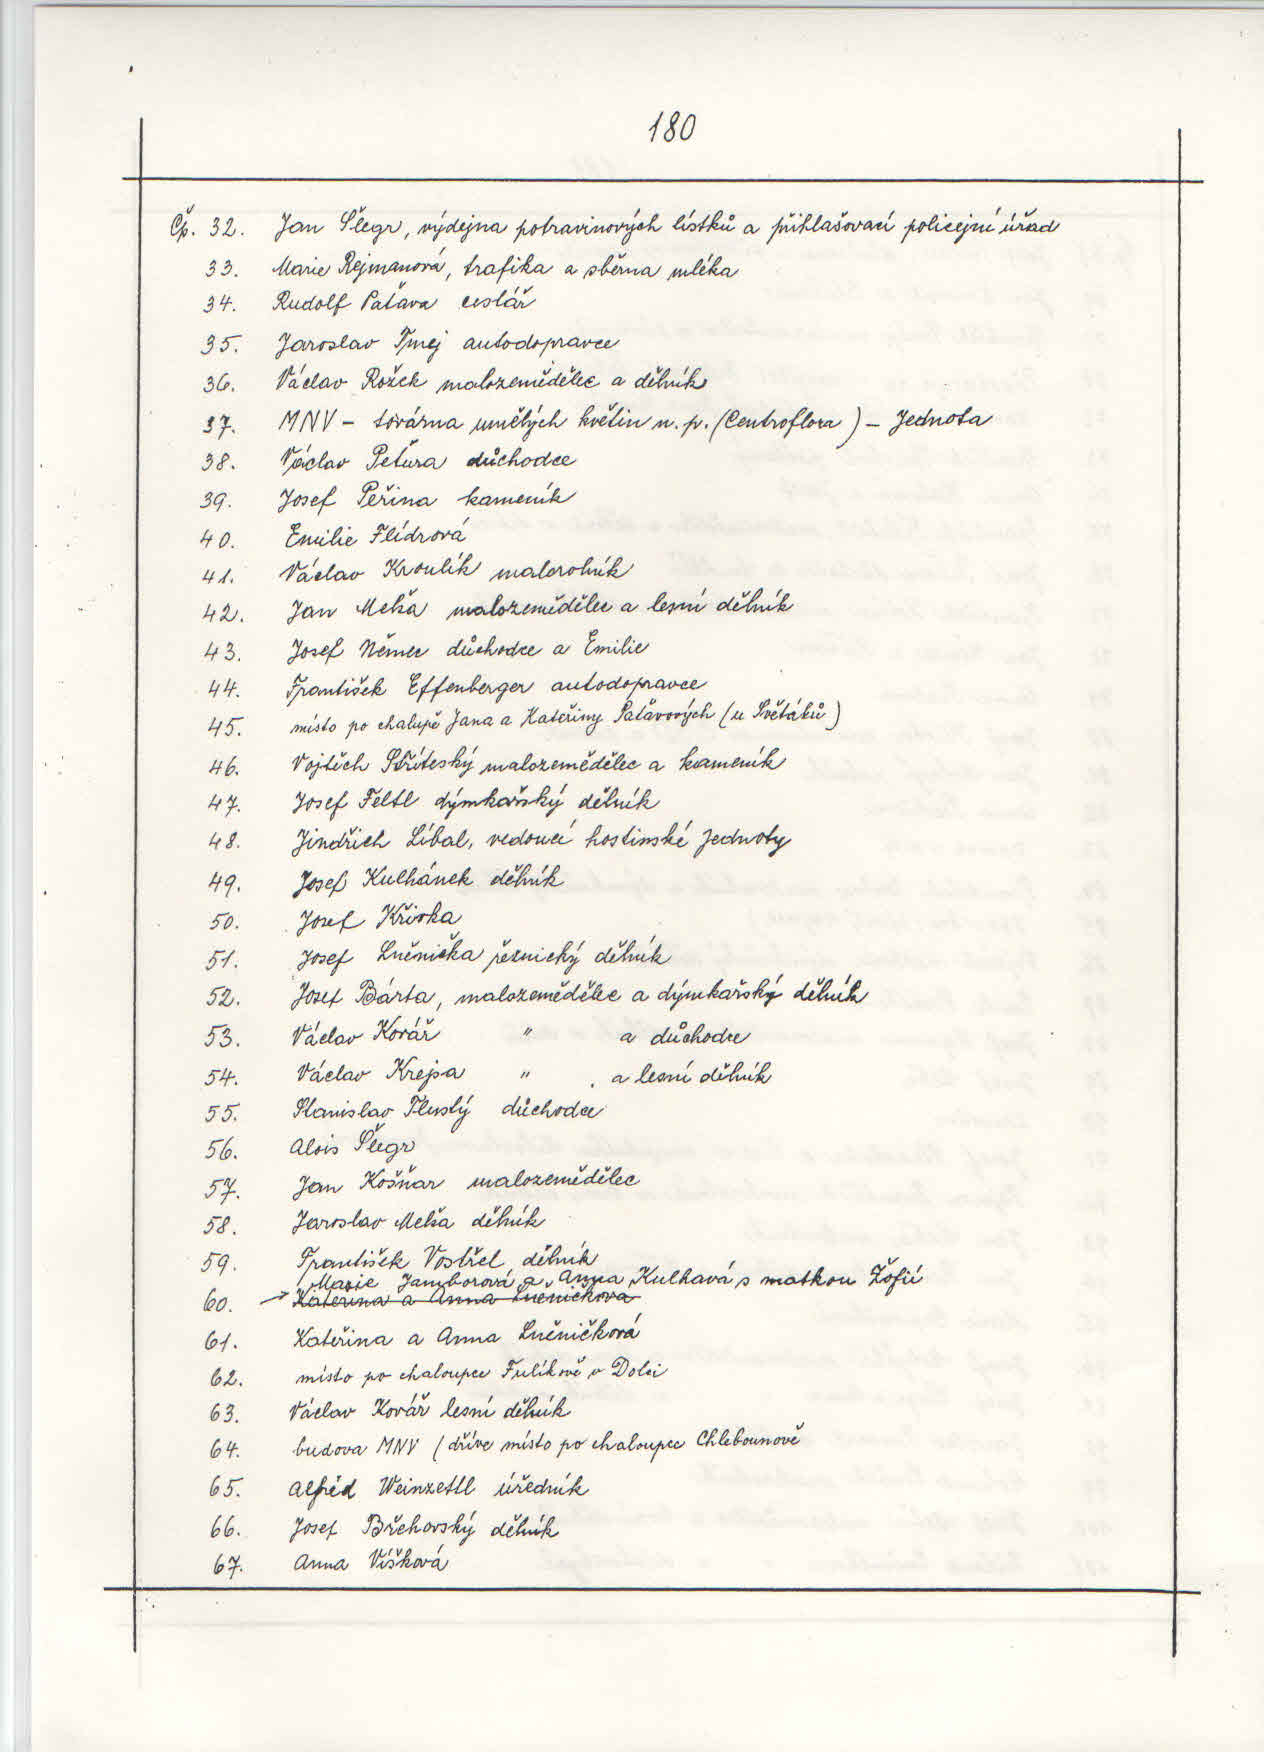 180
Čp. 32. Jan Šlegr, výdejna potravinových lístků a přihlašovací policejní úřad
33. Marie Rejmanová, trafika a sběrna mléka
34. Rudolf Paťava cestář
35. Jaroslav Tmej autodopravce
36. Václav Rožek malozemědělec a dělník
37. MNV – továrna umělých květin n. p. (Centroflora) – Jednota
38. Václav Peťura důchodce
39. Josef Peřina kameník
40. Emilie Flídrová
41. Václav Kroulík malorolník
42. Jan Melša malozemědělec a lesní dělník
43. Josef Němec důchodce a Emilie
44. František Effenberger autodopravce
45. místo po chalupě Jana a Kateřiny Paťavových (u Světáků)
46. Vojtěch Stříteský malozemědělec a kameník
47. Josef Feltl dýmkařský dělník
48. Jindřich Líbal, vedoucí hostinské Jednoty
49. Josef Kulhánek dělník
50. Josef Křivka
51. Josef Lněnička řeznický dělník
52. Josef Bárta, malozemědělec a dýmkařský dělník
53. Václav Kovář " a důchodce
54. Václav Krejsa " a lesní dělník
55. Stanislav Tlustý důchodce
56. Alois Šlegr
57. Jan Košňar malozemědělec
58. Jaroslav Melša dělník
59. František Vostřel dělník
Marie Jamborová a Anna Kulhavá s matkou Žofií
60. Kateřina a Anna Lněničková
61. Kateřina a Anna Lněničková
62. místo po chaloupce Fulíkově v Dolci
63. Václav Kovář lesní dělník
64. budova MNV (dříve místo po chaloupce Chlebounově
65. Alfréd Weinzettl úředník
66. Josef Břehovský dělník
67. Anna Víšková